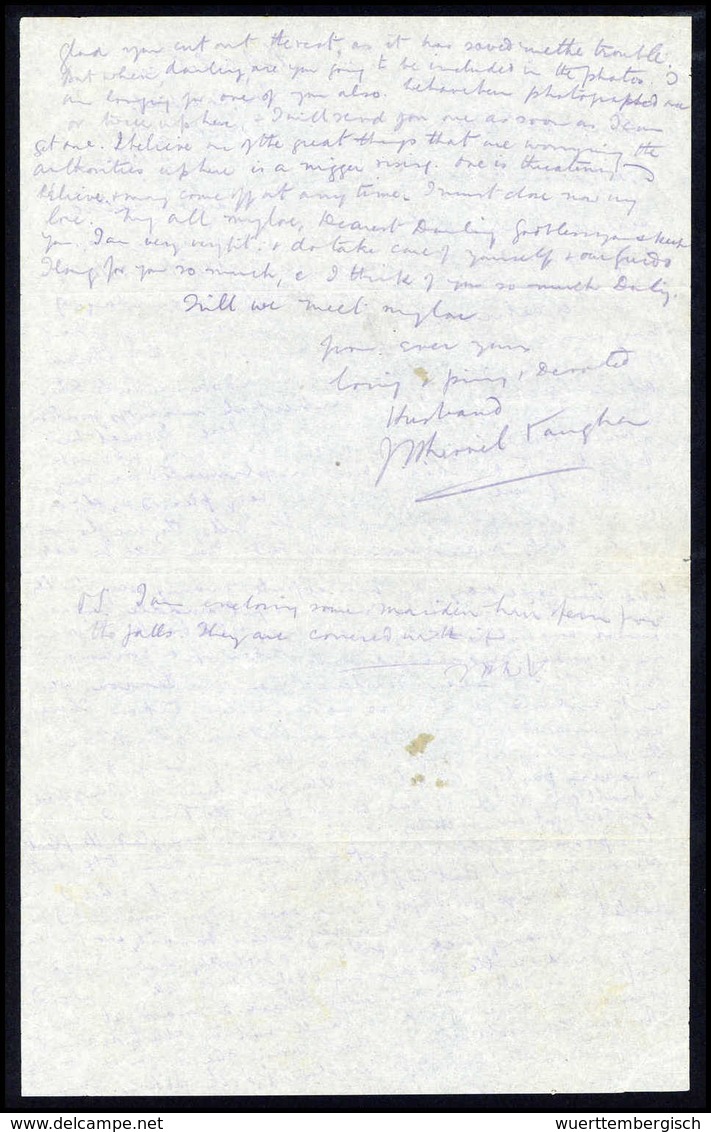 glad you cut out the rest, as it has saved me the trouble.
But when darling, are you going to be included in the photos?
am longing for one of you also. We have been photographed once
or twice up here, & I will send you one as soon as I can
get one. I believe one of the great things that are worrying the
authorities up here is a nigger rising. One is threatening I
believe, & may come off at any time. I must close now my
love. My all my love, Dearest Darling God bless you & keep
you. I am very very fit. & do take care of yourself & our
I long for you so much, & I think of you so much Darling.
Till we meet my love
from ever your
loving & , devoted
Husband
Vaughan
P.S. I am enclosing some maiden hair fern from
the falls. They are covered with it.
wuerttembergisch